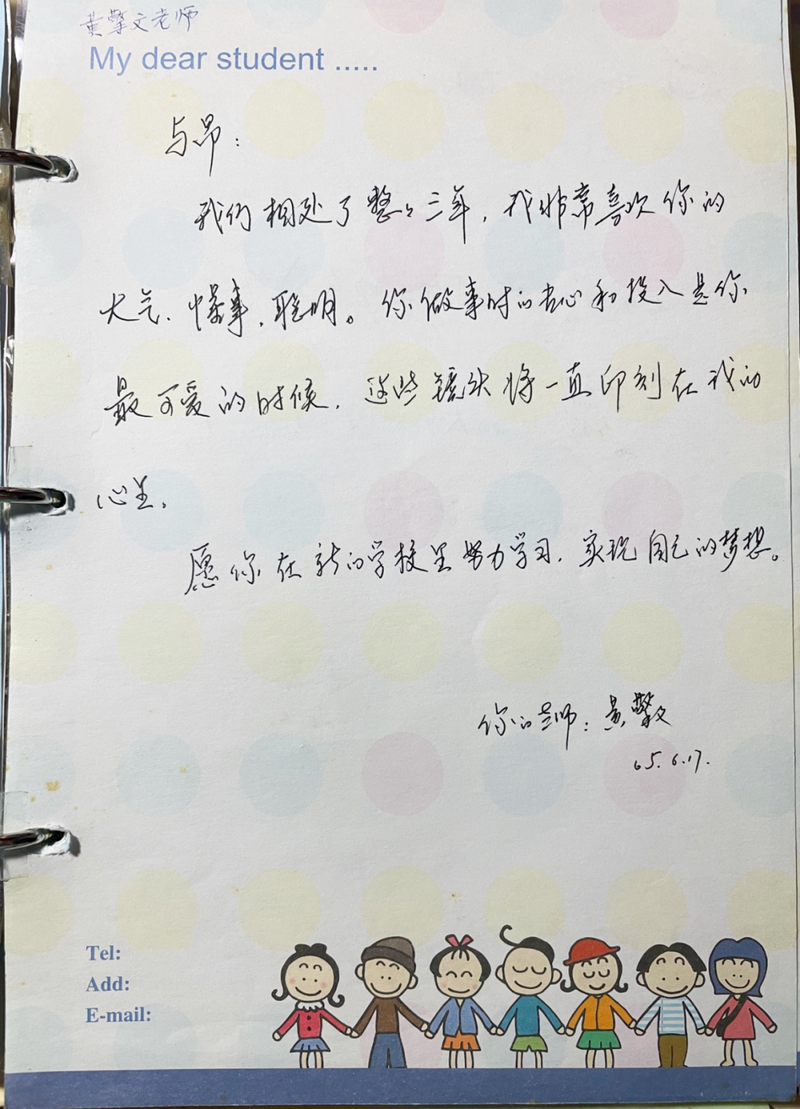 黄擎文老师
My dear student .....
与昂：
我们相处了整々三年，我非常喜欢你的
大气、懂事、聪明。你做事时的专心和投入是你
最可爱的时候，这些镜头将一直印刻在我的
心里，
愿你在新的学校里努力学习，实现自己的梦想。
你的老师：黄擎文
05.6.17.
Tel:
Add:
E-mail: